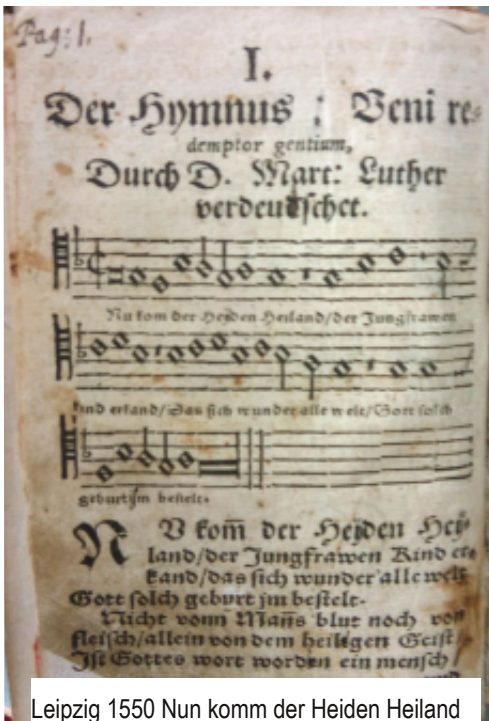 Pag: 1.
I.
Der Hymnus : Veni re⸗
demptor gentium,
Durch D. Mart: Luther
verdeudschet.
Nu kom der Heyden Heiland/der Jungfrawen
kind erkand/Das sich wunder alle welt/Gott solch
geburt jm bestelt.
NU kom̄ der Heyden Hey⸗
land/der Jungfrawen Kind er⸗
kand/das sich wunder alle welt
Gott solch geburt jm bestelt.
Nicht vonn Mañs blut noch von
fleisch/allein von dem heiligen Geist/
Ist Gottes wort worden ein mensch/
Leipzig 1550 Nun komm der Heiden Heiland